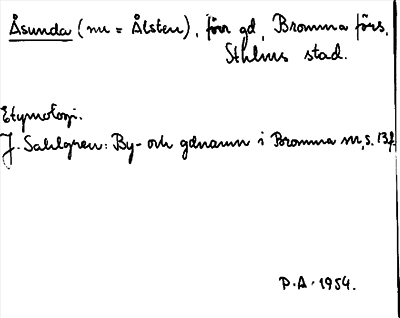 Åsunda (nu = Ålsten), förr gd, Bromma förs,
Sthlms stad.
Etymologi.
J. Sahlgren: By- och gdnamn i Bromma m, s. 13f.
P.A. 1954.